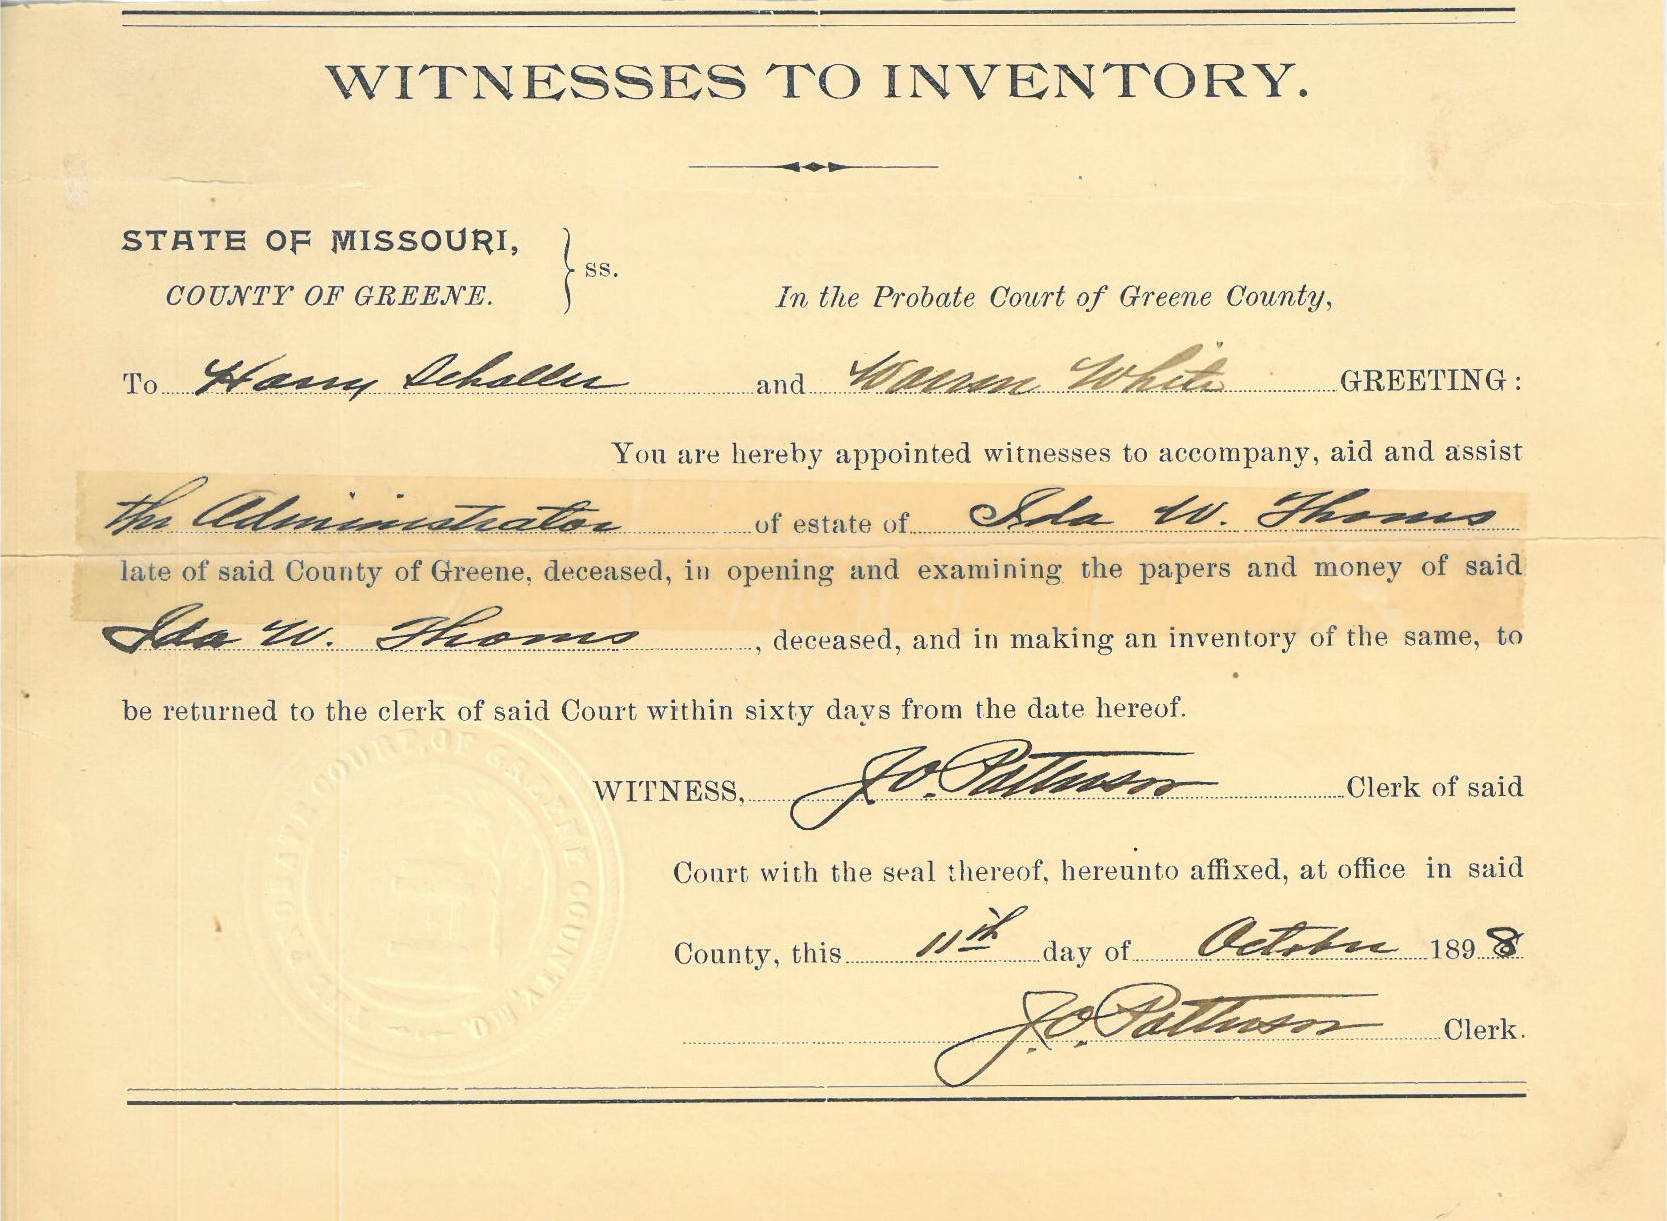 WITNESSES TO INVENTORY.
STATE OF MISSOURI,
COUNTY OF GREENE.
ss.
In the Probate Court of Greene County,
To Harry Schaller and Warren White GREETING:
You are hereby appointed witnesses to accompany, aid and assist
the Administrator of estate of Ida W. Thoms
late of said County of Greene, deceased, in opening and examining the papers and money of said
Ida W. Thoms, deceased, and in making an inventory of the same, to
be returned to the clerk of said Court within sixty days from the date hereof.
WITNESS, J.O. Patterson Clerk of said
Court with the seal thereof, hereunto affixed, at office in said
County, this 11th day of October 1898
J.O. Patterson Clerk.
THE PROBATE COURT, OF GREENE COUNTY, MO.